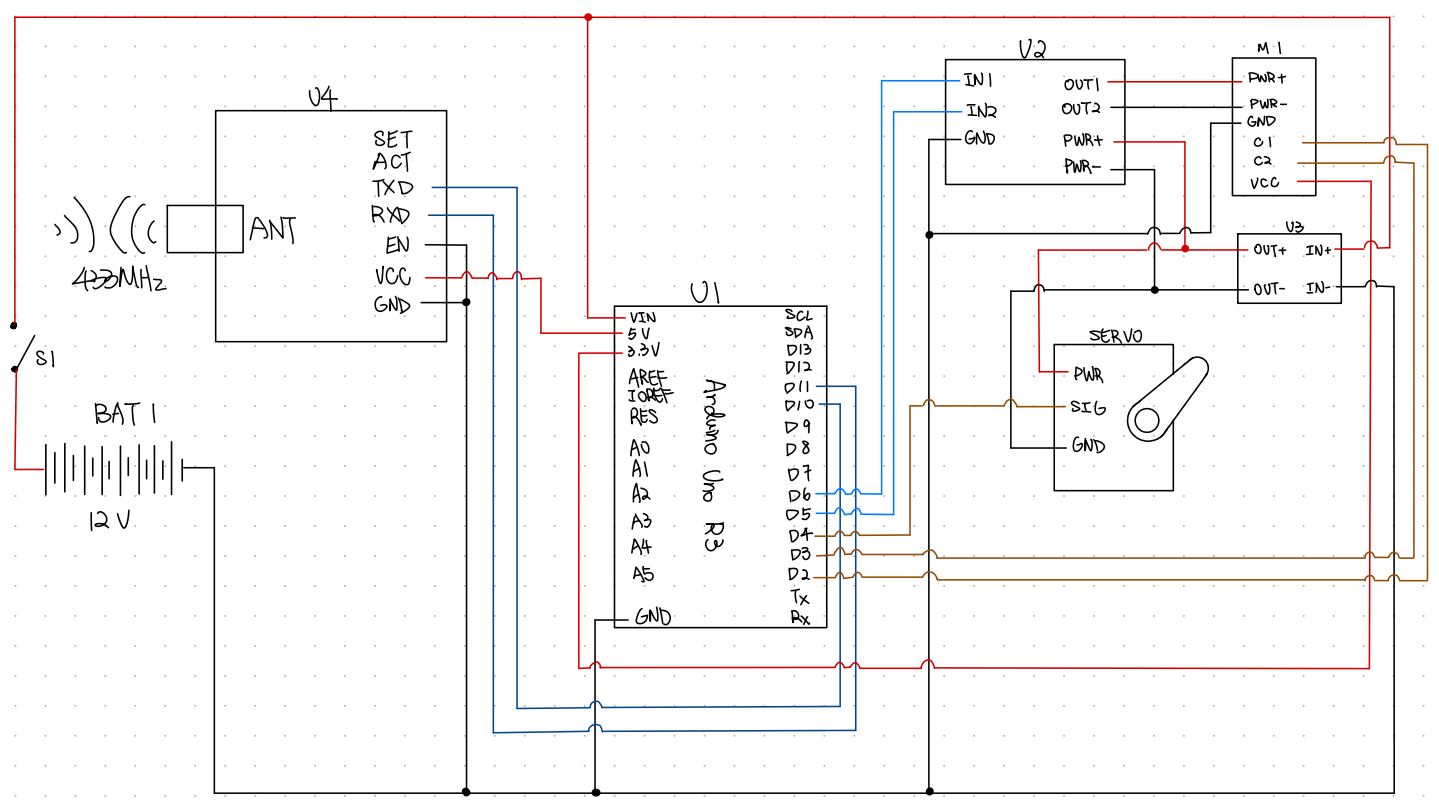 U4
SET
ACT
TXD
RXD
EN
VCC
GND
ANT
433MHz
S1
BAT 1
12 V
U1
VIN
5V
3.3V
AREF
IOREF
RES
A0
A1
A2
A3
A4
A5
GND
Arduino Uno R3
SCL
SDA
D13
D12
D11
D10
D9
D8
D7
D6
D5
D4
D3
D2
Tx
Rx
U2
IN1
IN2
GND
OUT1
OUT2
PWR+
PWR-
M1
PWR+
PWR-
GND
C1
C2
VCC
U3
OUT+ IN+
OUT- IN-
SERVO
PWR
SIG
GND